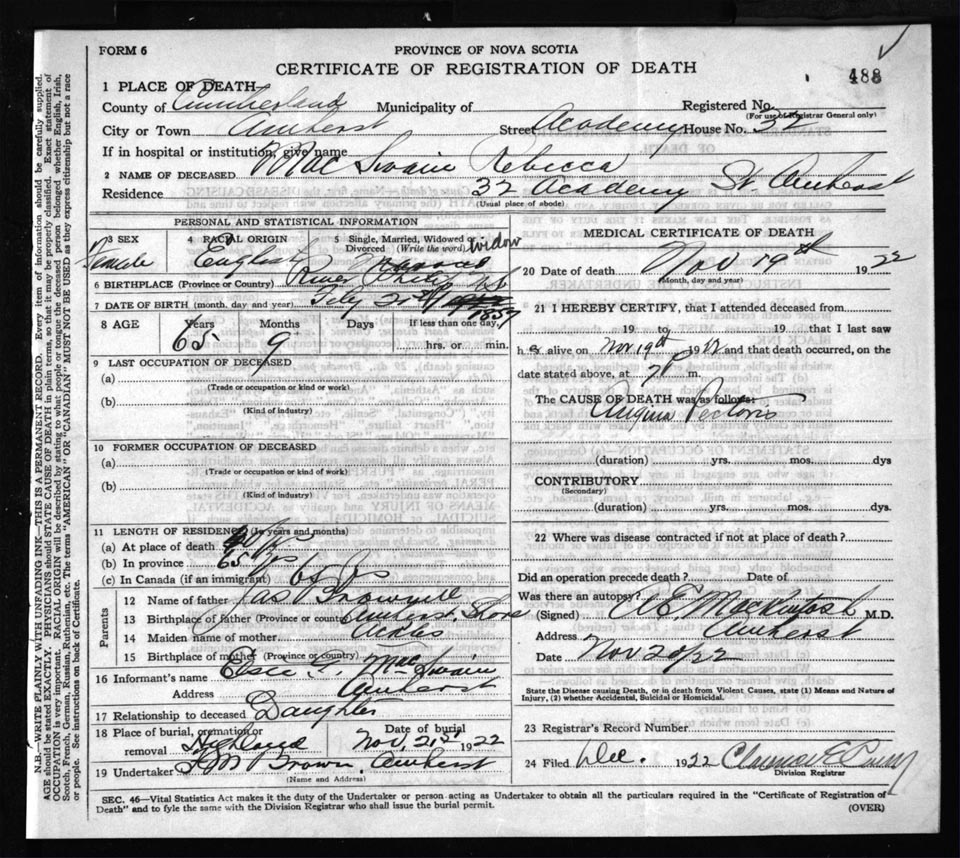 FORM 6
PROVINCE OF NOVA SCOTIA
CERTIFICATE OF REGISTRATION OF DEATH
488
1 PLACE OF DEATH
County of Cumberland Municipality of Registered No.
(For use of Registrar General only)
City or Town Amherst Street Academy House No. 32
If in hospital or institution, give name
2 NAME OF DECEASED MacSwain Rebecca
Residence 32 Academy St. Amherst
(Usual place of abode)
PERSONAL AND STATISTICAL INFORMATION
3 SEX Female
4 RACIAL ORIGIN English
5 Single, Married, Widowed or Divorced (Write the word) widow
6 BIRTHPLACE (Province or Country)
7 DATE OF BIRTH (month, day and year) 1857
8 AGE Years Months Days If less than one day,
65 9 hrs. or min.
9 LAST OCCUPATION OF DECEASED
(a)
(Trade or occupation or kind or work)
(b)
(Kind of industry)
10 FORMER OCCUPATION OF DECEASED
(a)
(Trade or occupation or kind of work)
(b)
(Kind of industry)
11 LENGTH OF RESIDENCE (In years and months)
(a) At place of death
(b) In province 65 yrs
(c) In Canada (if an immigrant) 65 yrs
Parents
12 Name of father Jas Brownell
13 Birthplace of father (Province or country) Amherst Shore
14 Maiden name of mother
15 Birthplace of mother (Province or country)
16 Informant's name MacSwain
Address Amherst
17 Relationship to deceased Daughter
18 Place of burial, cremation or removal Highland
Date of burial Nov. 21st 1922
19 Undertaker Brown, Amherst
(Name and Address)
MEDICAL CERTIFICATE OF DEATH
20 Date of death Nov 19th 1922
(Month, day and year)
21 I HEREBY CERTIFY, that I attended deceased from
19 to 19 that I last saw
h er alive on Nov 19th 1922 and that death occurred, on the
date stated above, at m.
The CAUSE OF DEATH was as follows:
Angina Pectoris
(duration) yrs. mos. dys
CONTRIBUTORY
(Secondary)
(duration) yrs. mos. dys
22 Where was disease contracted if not at place of death?
Did an operation precede death? Date of
Was there an autopsy?
(Signed) A E Mackintosh M.D.
Address Amherst
Date Nov 20/22
State the Disease causing Death, or in death from Violent Causes, state (1) Means and Nature of
Injury, (2) whether Accidental, Suicidal or Homicidal.
23 Registrar's Record Number
24 Filed Dec. 1922
Division Registrar
SEC. 46—Vital Statistics Act makes it the duty of the Undertaker or person acting as Undertaker to obtain all the particulars required in the "Certificate of Registration of
Death" and to fyle the same with the Division Registrar who shall issue the burial permit.
(OVER)
N.B.—WRITE PLAINLY WITH UNFADING INK—THIS IS A PERMANENT RECORD. Every item of information should be carefully supplied.
AGE should be stated EXACTLY. PHYSICIANS should STATE CAUSE OF DEATH in plain terms, so that it may be properly classified. Exact statement of
OCCUPATION is very important. RACIAL ORIGIN will be described by stating to what people or tongue the deceased person belonged whether English, Irish,
Scotch, French, German, Russian, Ruthenian, etc. The terms "AMERICAN" OR "CANADIAN" MUST NOT BE USED as they express citizenship but not a race
or people. See instructions on back of Certificate.